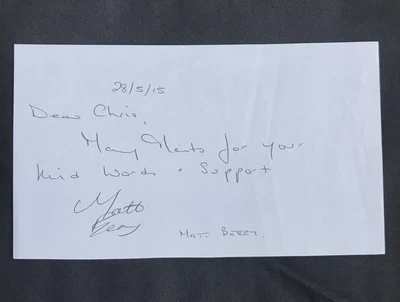 28/5/15
Dear Chris,
Many Thanks for your
kind words + Support
Matt
Berry
MATT BERRY.